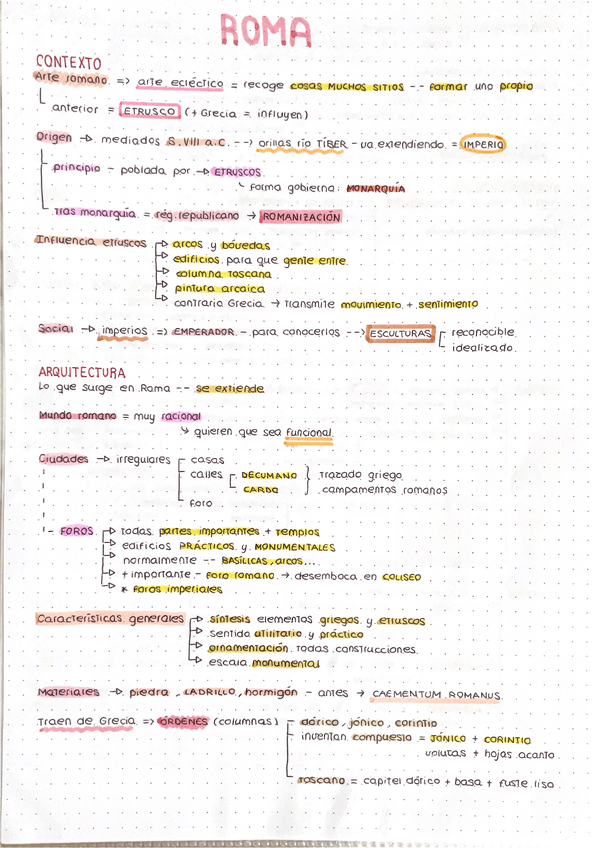 ROMA
CONTEXTO
Arte romano => arte ecléctico = recoge cosas MUCHOS SITIOS -- formar uno propio
anterior = ETRUSCO (+ Grecia = influyen)
Origen -> mediados S.VIII a.C. --> orillas río TÍBER - va extendiendo = IMPERIO
principio - poblada por -> ETRUSCOS
forma gobierno: MONARQUÍA
Tras monarquía = rég. republicano -> ROMANIZACIÓN
Influencia etruscos
arcos y bóvedas
edificios para que gente entre
columna toscana
pintura arcaica
contrario Grecia -> transmite movimiento + sentimiento
Social -> imperios => EMPERADOR - para conocerlos --> ESCULTURAS
reconocible
idealizado
ARQUITECTURA
Lo que surge en Roma -- se extiende
Mundo romano = muy racional
quieren que sea funcional
Ciudades -> irregulares
casas
calles
DECUMANO
CARDO
trazado griego
campamentos romanos
foro
- FOROS
todas partes importantes + templos
edificios PRÁCTICOS y MONUMENTALES
normalmente -- BASÍLICAS, arcos...
+ importante - foro romano -> desemboca en COLISEO
* foros imperiales
Características generales
síntesis elementos griegos y etruscos
sentido utilitario y práctico
ornamentación todas construcciones
escala monumental
Materiales -> piedra, LADRILLO, hormigón - antes -> CAEMENTUM ROMANUS
Traen de Grecia => ÓRDENES (columnas)
dórico, jónico, corintio
inventan compuesto = JÓNICO + CORINTIO
volutas + hojas acanto
toscano = capitel dórico + basa + fuste liso